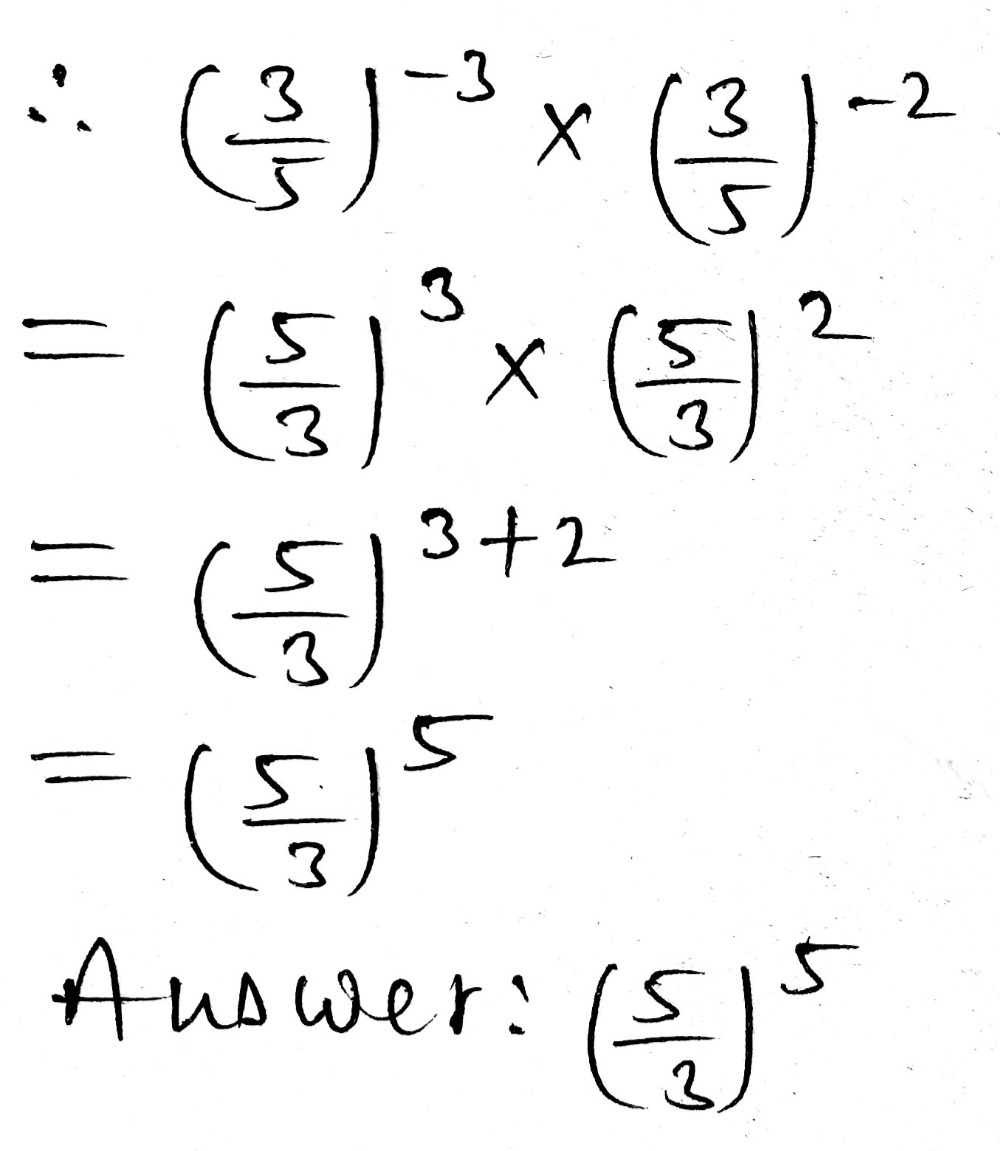 ∴ (3/5)^-3 × (3/5)^-2
= (5/3)^3 × (5/3)^2
= (5/3)^3+2
= (5/3)^5
Answer: (5/3)^5